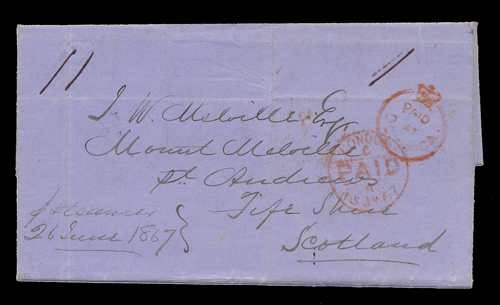 11
1
J. W. Melville Esq
Mount Melville
St. Andrews
Fife Shire
Scotland
p steamer
26 June 1867
PAID
AT
LONDON
PAID